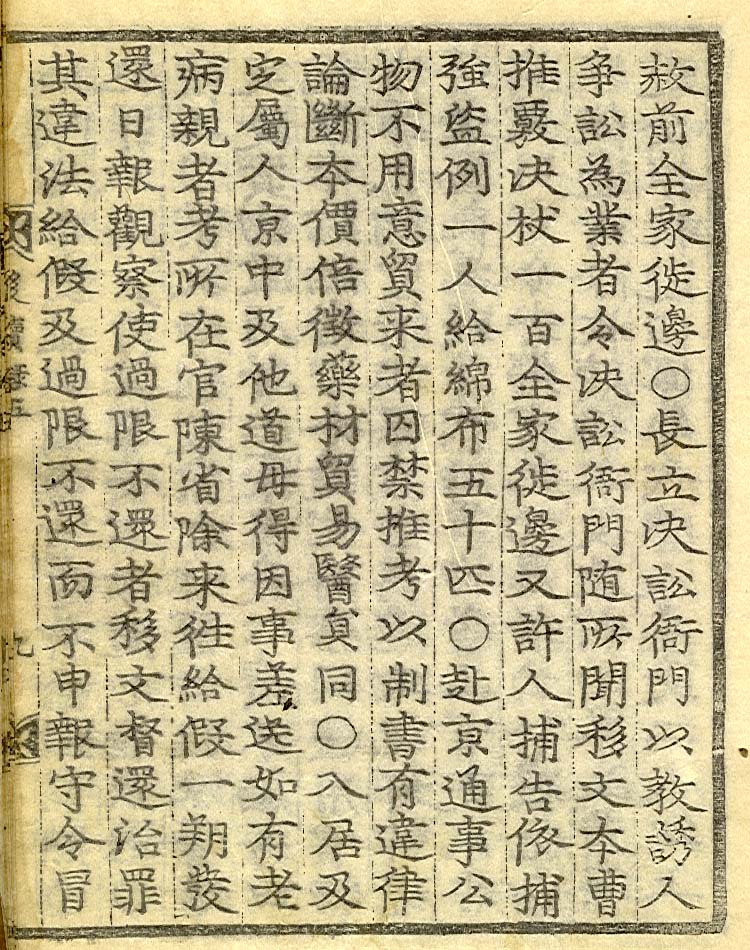 赦前全家徙邊○長立决訟衙門以教誘人
争訟為業者令决訟衙門随所聞移文本曹
推覈决杖一百全家徙邊又許人捕告依捕
強盗例一人給綿布五十匹○赴京通事公
物不用意貿来者囚禁推考以制書有違律
論斷本價倍徴藥材貿易醫員同○入居及
定屬人京中及他道毋得因事差送如有老
病親者考所在官陳省除来徃給假一朔發
還日報觀察使過限不還者移文督還治罪
其違法給假及過限不還而不申報守令冒
後續録五
九